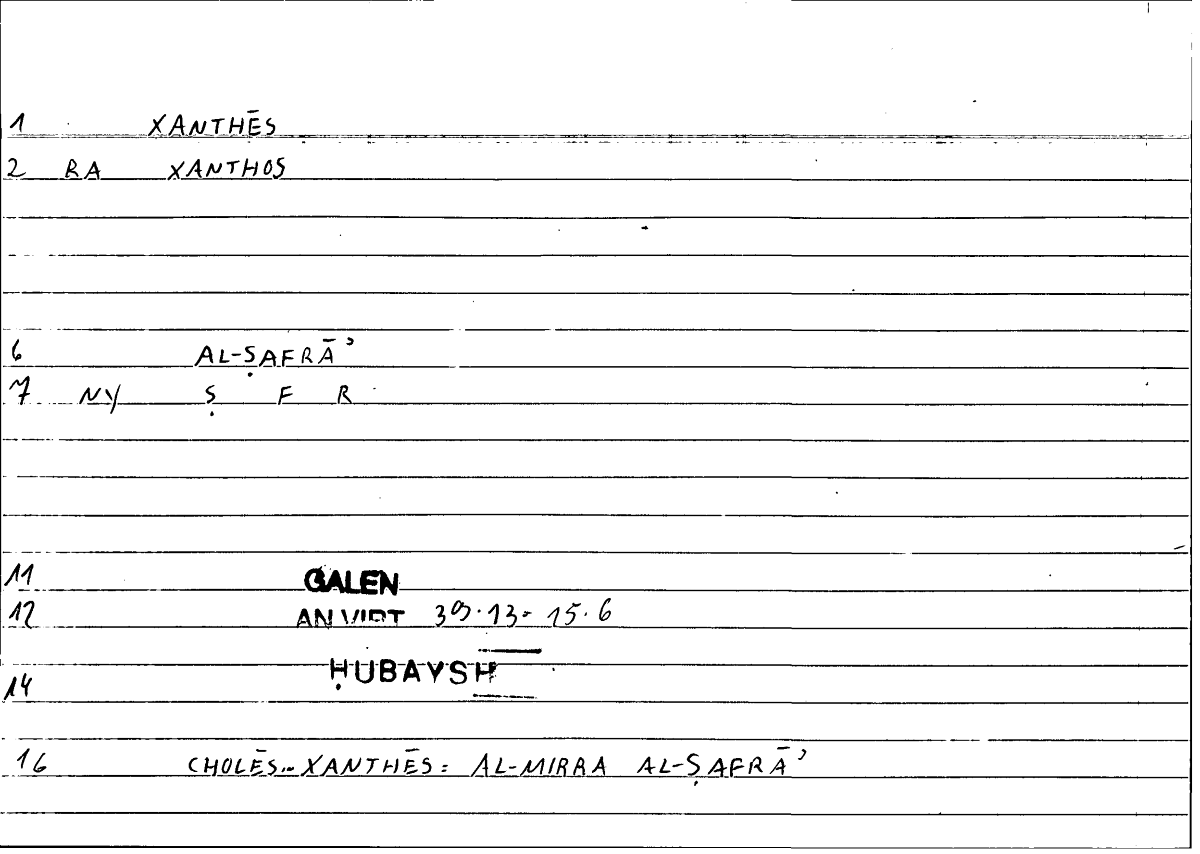 1 XANTHĒS
2 RA XANTHOS
6 AL-ṢAFRĀʾ
7 NY Ṣ F R
11 GALEN
12 AN VIRT 39.13 = 15.6
14 ḤUBAYSH
16 CHOLĒS... XANTHĒS: AL-MIRRA AL-ṢAFRĀʾ